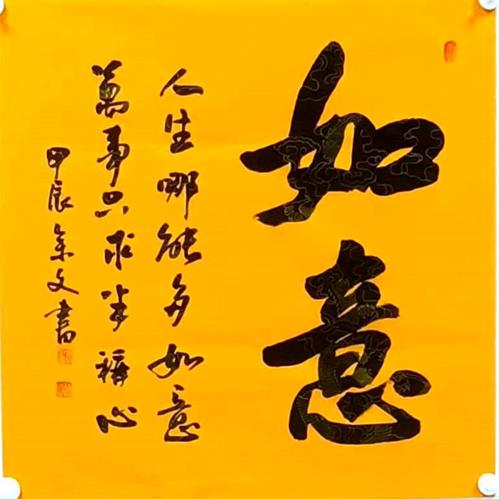 如意
人生哪能多如意
萬事只求半稱心
甲辰年文書